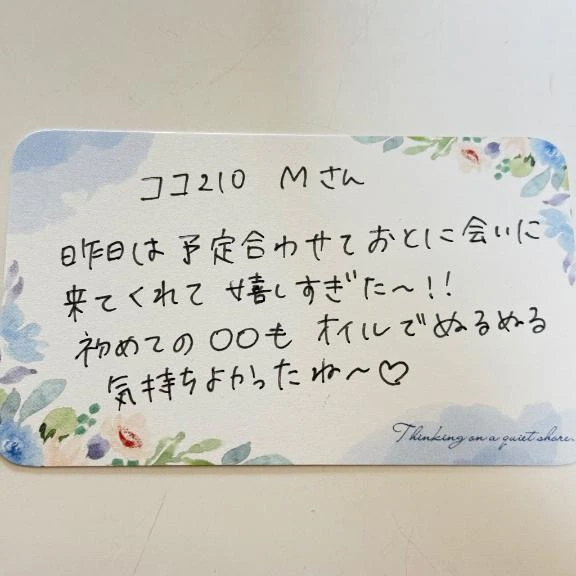 ココ210 Mさん
昨日は予定合わせておとに会いに
来てくれて嬉しすぎた〜!!
初めての〇〇も オイルでぬるぬる
気持ちよかったね〜♡
Thinking on a quiet shore.